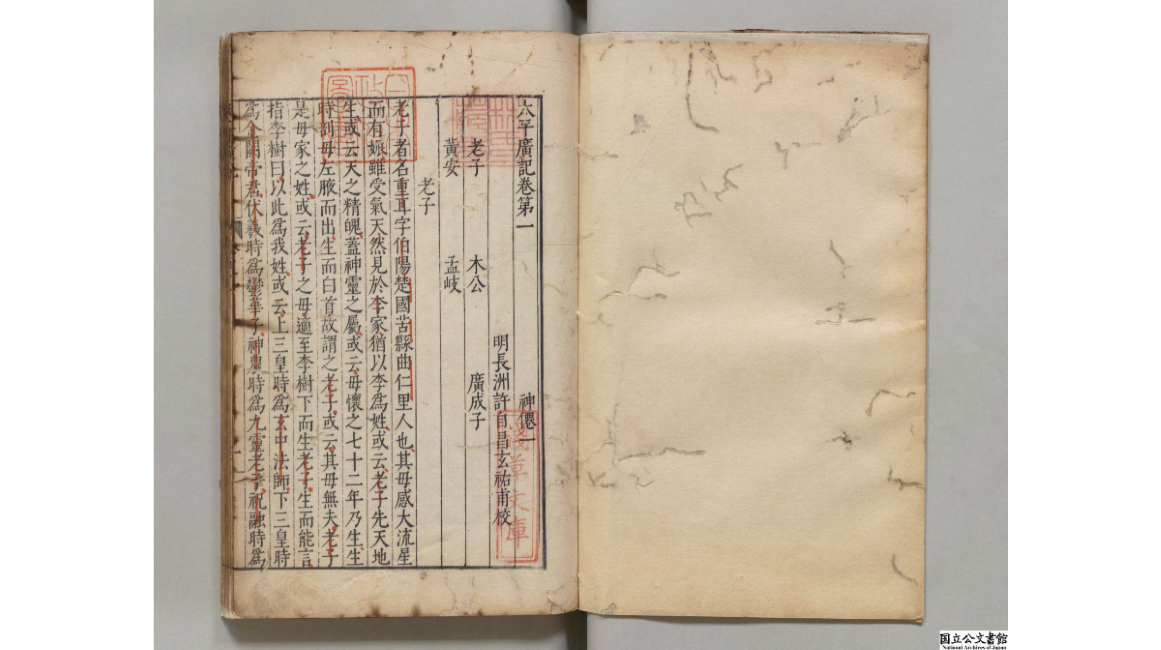 太平廣記卷第一 神僊一
明長洲許自昌玄祐甫校
老子 木公 廣成子
黃安 孟岐
老子
老子者名重耳字伯陽楚國苦縣曲仁里人也其母感大流星
而有娠雖受氣天然見於李家猶以李爲姓或云老子先天地
生或云天之精魄蓋神靈之屬或云母懷之七十二年乃生生
時剖母左腋而出生而白首故謂之老子或云其母無夫老子
是母家之姓或云老子之母適至李樹下而生老子生而能言
指李樹曰以此爲我姓或云上三皇時爲玄中法師下三皇時
爲金闕帝君伏羲時爲鬱華子神農時爲九靈老子祝融時爲
淺草文庫
国立公文書館
National Archives of Japan